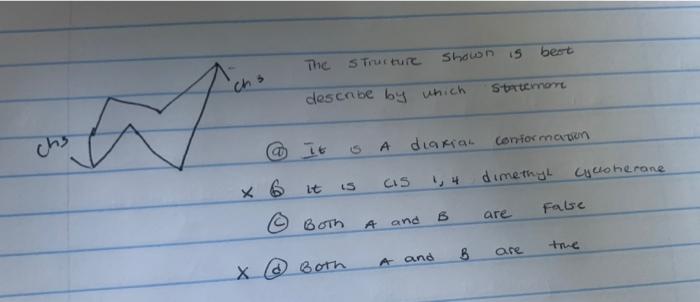 The structure shown is best
ch3
describe by which statement
ch3
a It is A diaxial conformation
x b it is cis 1,4 dimethyl cyclohexane
c Both A and B are False
x d Both A and B are true